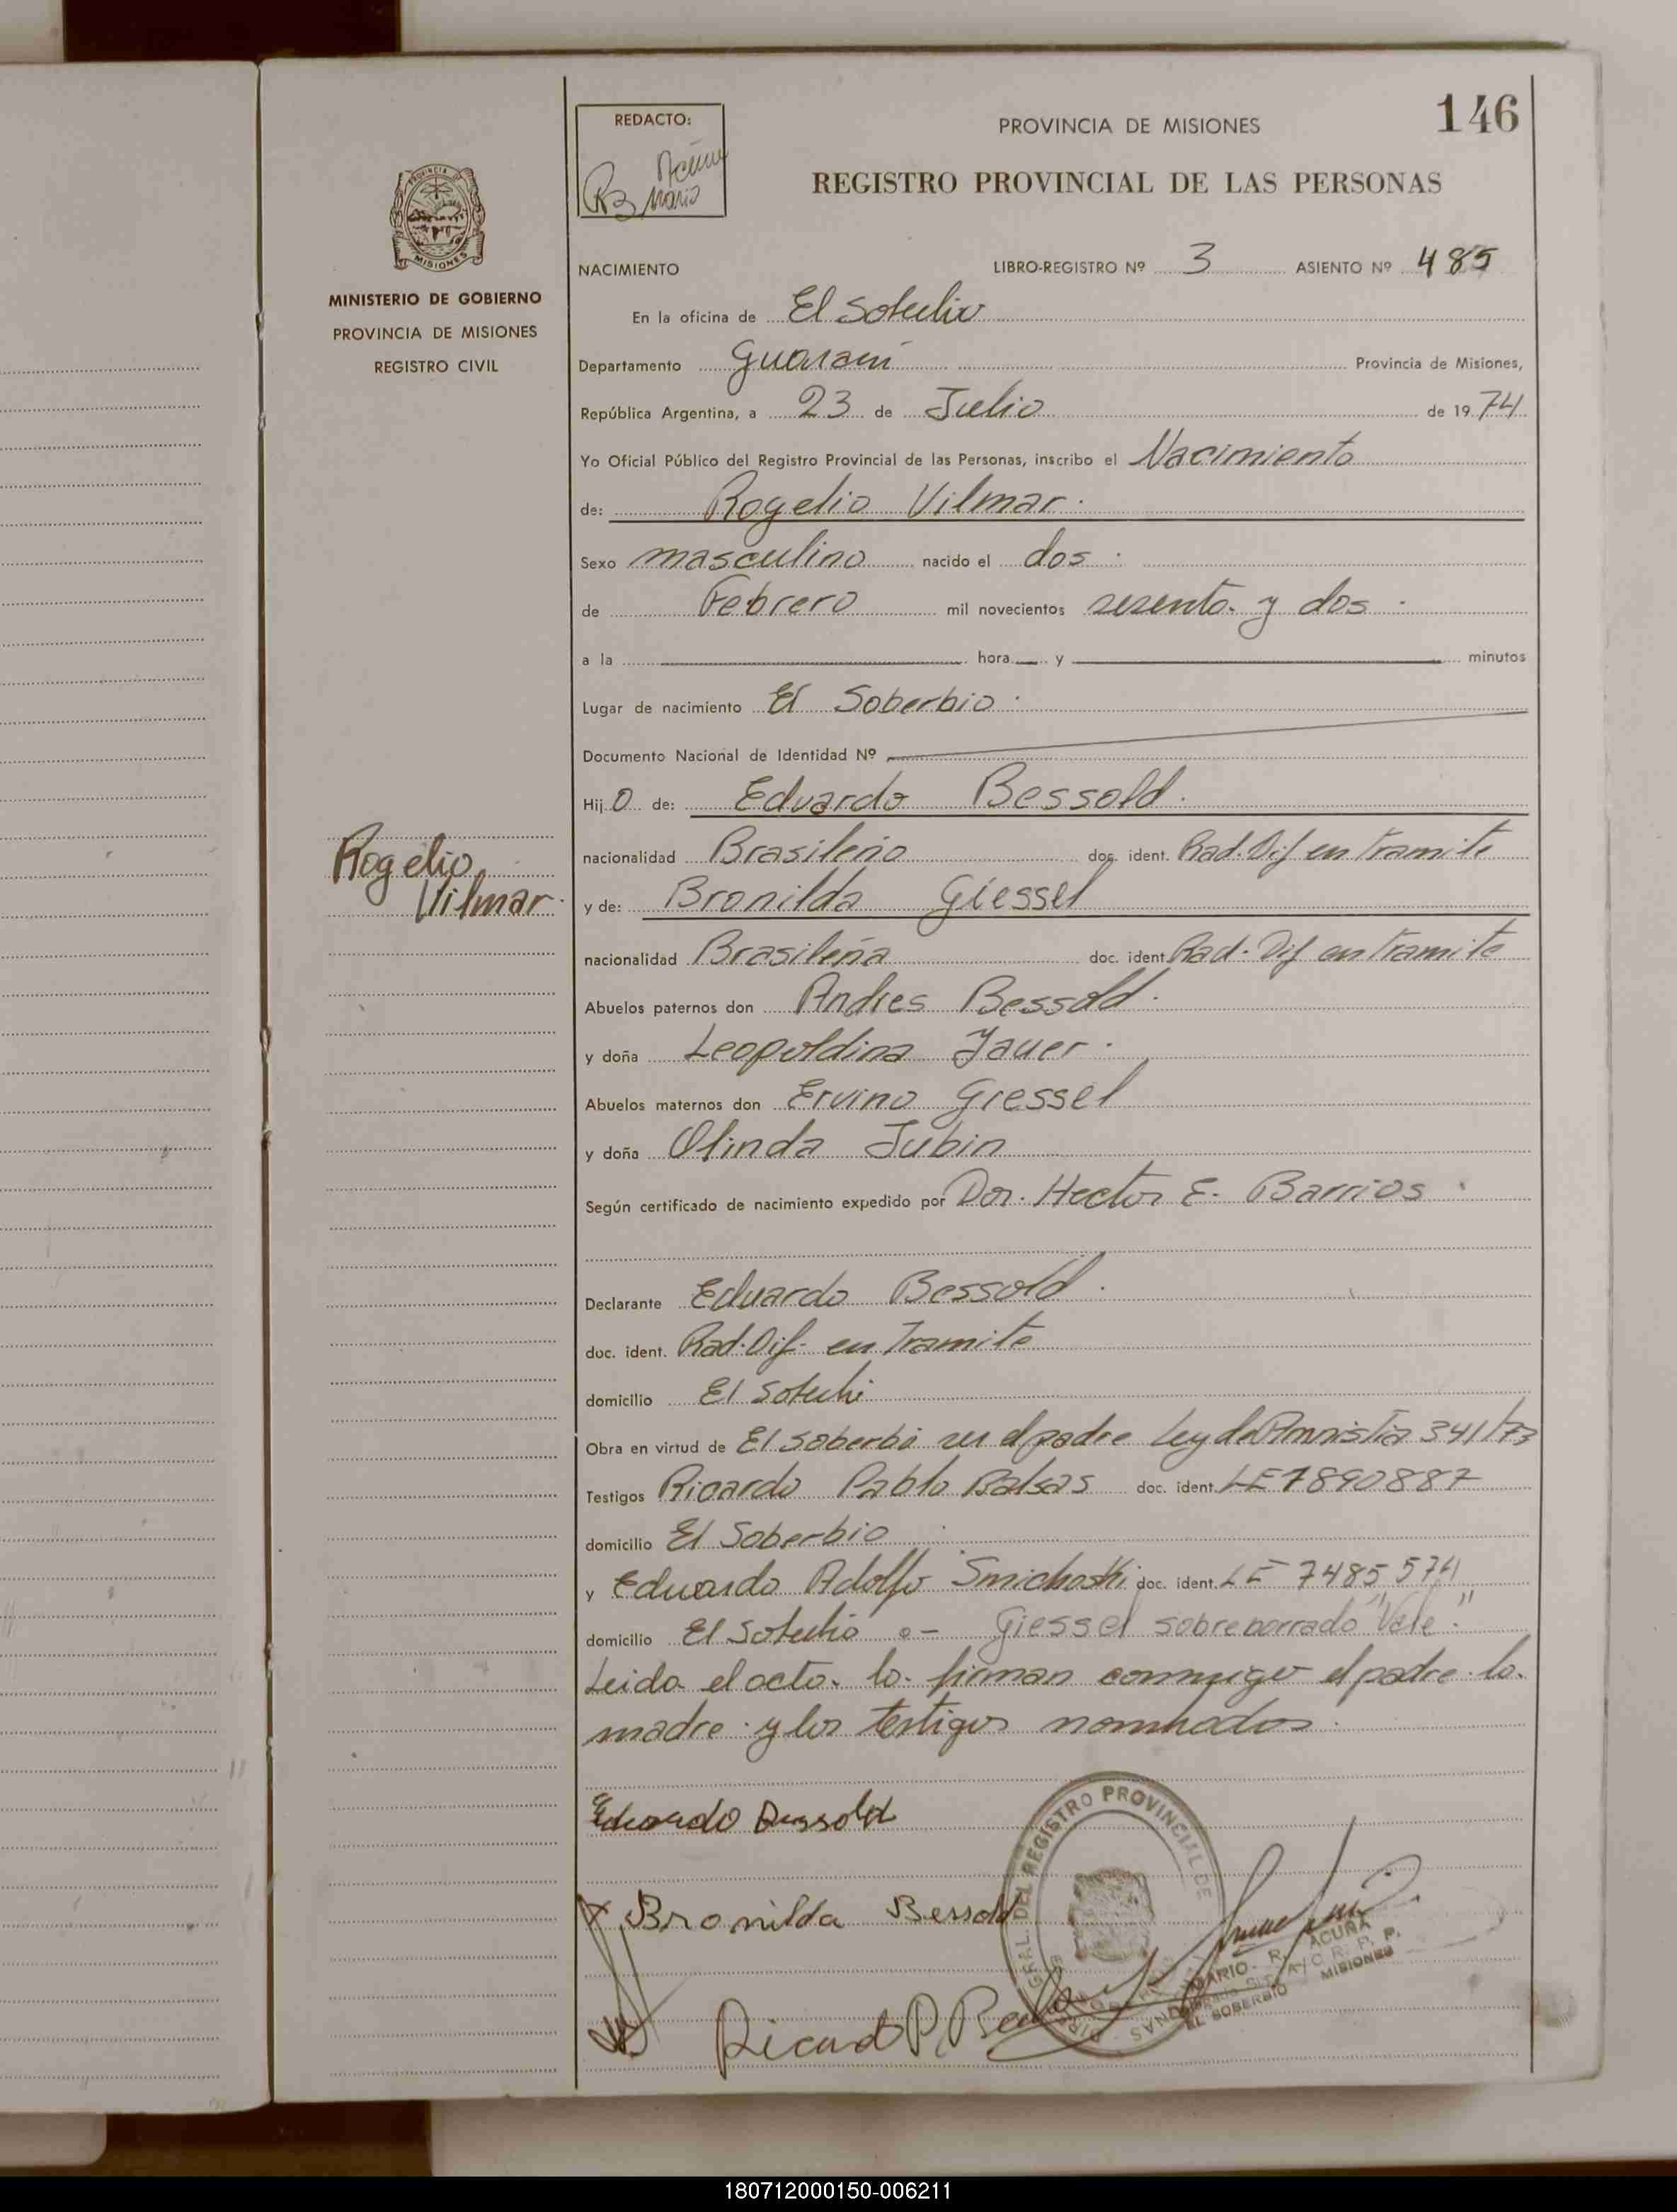 146
REDACTO:
PROVINCIA DE MISIONES
REGISTRO PROVINCIAL DE LAS PERSONAS
PROVINCIA
MISIONES
MINISTERIO DE GOBIERNO
PROVINCIA DE MISIONES
REGISTRO CIVIL
NACIMIENTO LIBRO-REGISTRO Nº 3 ASIENTO Nº 485
En la oficina de El Soberbio
Departamento Guaraní Provincia de Misiones,
República Argentina, a 23 de Julio de 1974
Yo Oficial Público del Registro Provincial de las Personas, inscribo el Nacimiento
de: Rogelio Vilmar.
Sexo masculino nacido el dos
de Febrero mil novecientos sesenta y dos
a la hora y minutos
Lugar de nacimiento El Soberbio
Documento Nacional de Identidad Nº
Hijo de: Eduardo Bessold.
nacionalidad Brasileño doc. ident. Rad. Dif en Tramite
Rogelio
Vilmar
y de: Bronilda Giessel
nacionalidad Brasileña doc. ident. Rad. Dif en Tramite
Abuelos paternos don Andres Bessold
y doña Leopoldina Jauer
Abuelos maternos don Ervino Giessel
y doña Olinda Jubin
Según certificado de nacimiento expedido por Dor. Hector E. Barrios
Declarante Eduardo Bessold
doc. ident. Rad. Dif. en Tramite
domicilio El Soberbio
Obra en virtud de El Soberbio ser el padre Ley de Amnistia 341/73
Testigos Ricardo Pablo Balsas doc. ident. LE 7890887
domicilio El Soberbio
y Eduardo Adolfo Smichoski doc. ident. LE 7485574
domicilio El Soberbio o- Giessel sobreborrado "Vale".
Leida el acta la firman conmigo el padre la
madre y los testigos nombrados
Eduardo Bessold
Bronilda Bessold
Ricardo P. Balsas
GRAL. DEL REGISTRO PROVINCIAL DE
MARIO R. ACUÑA
EL SOBERBIO MISIONES
180712000150-006211